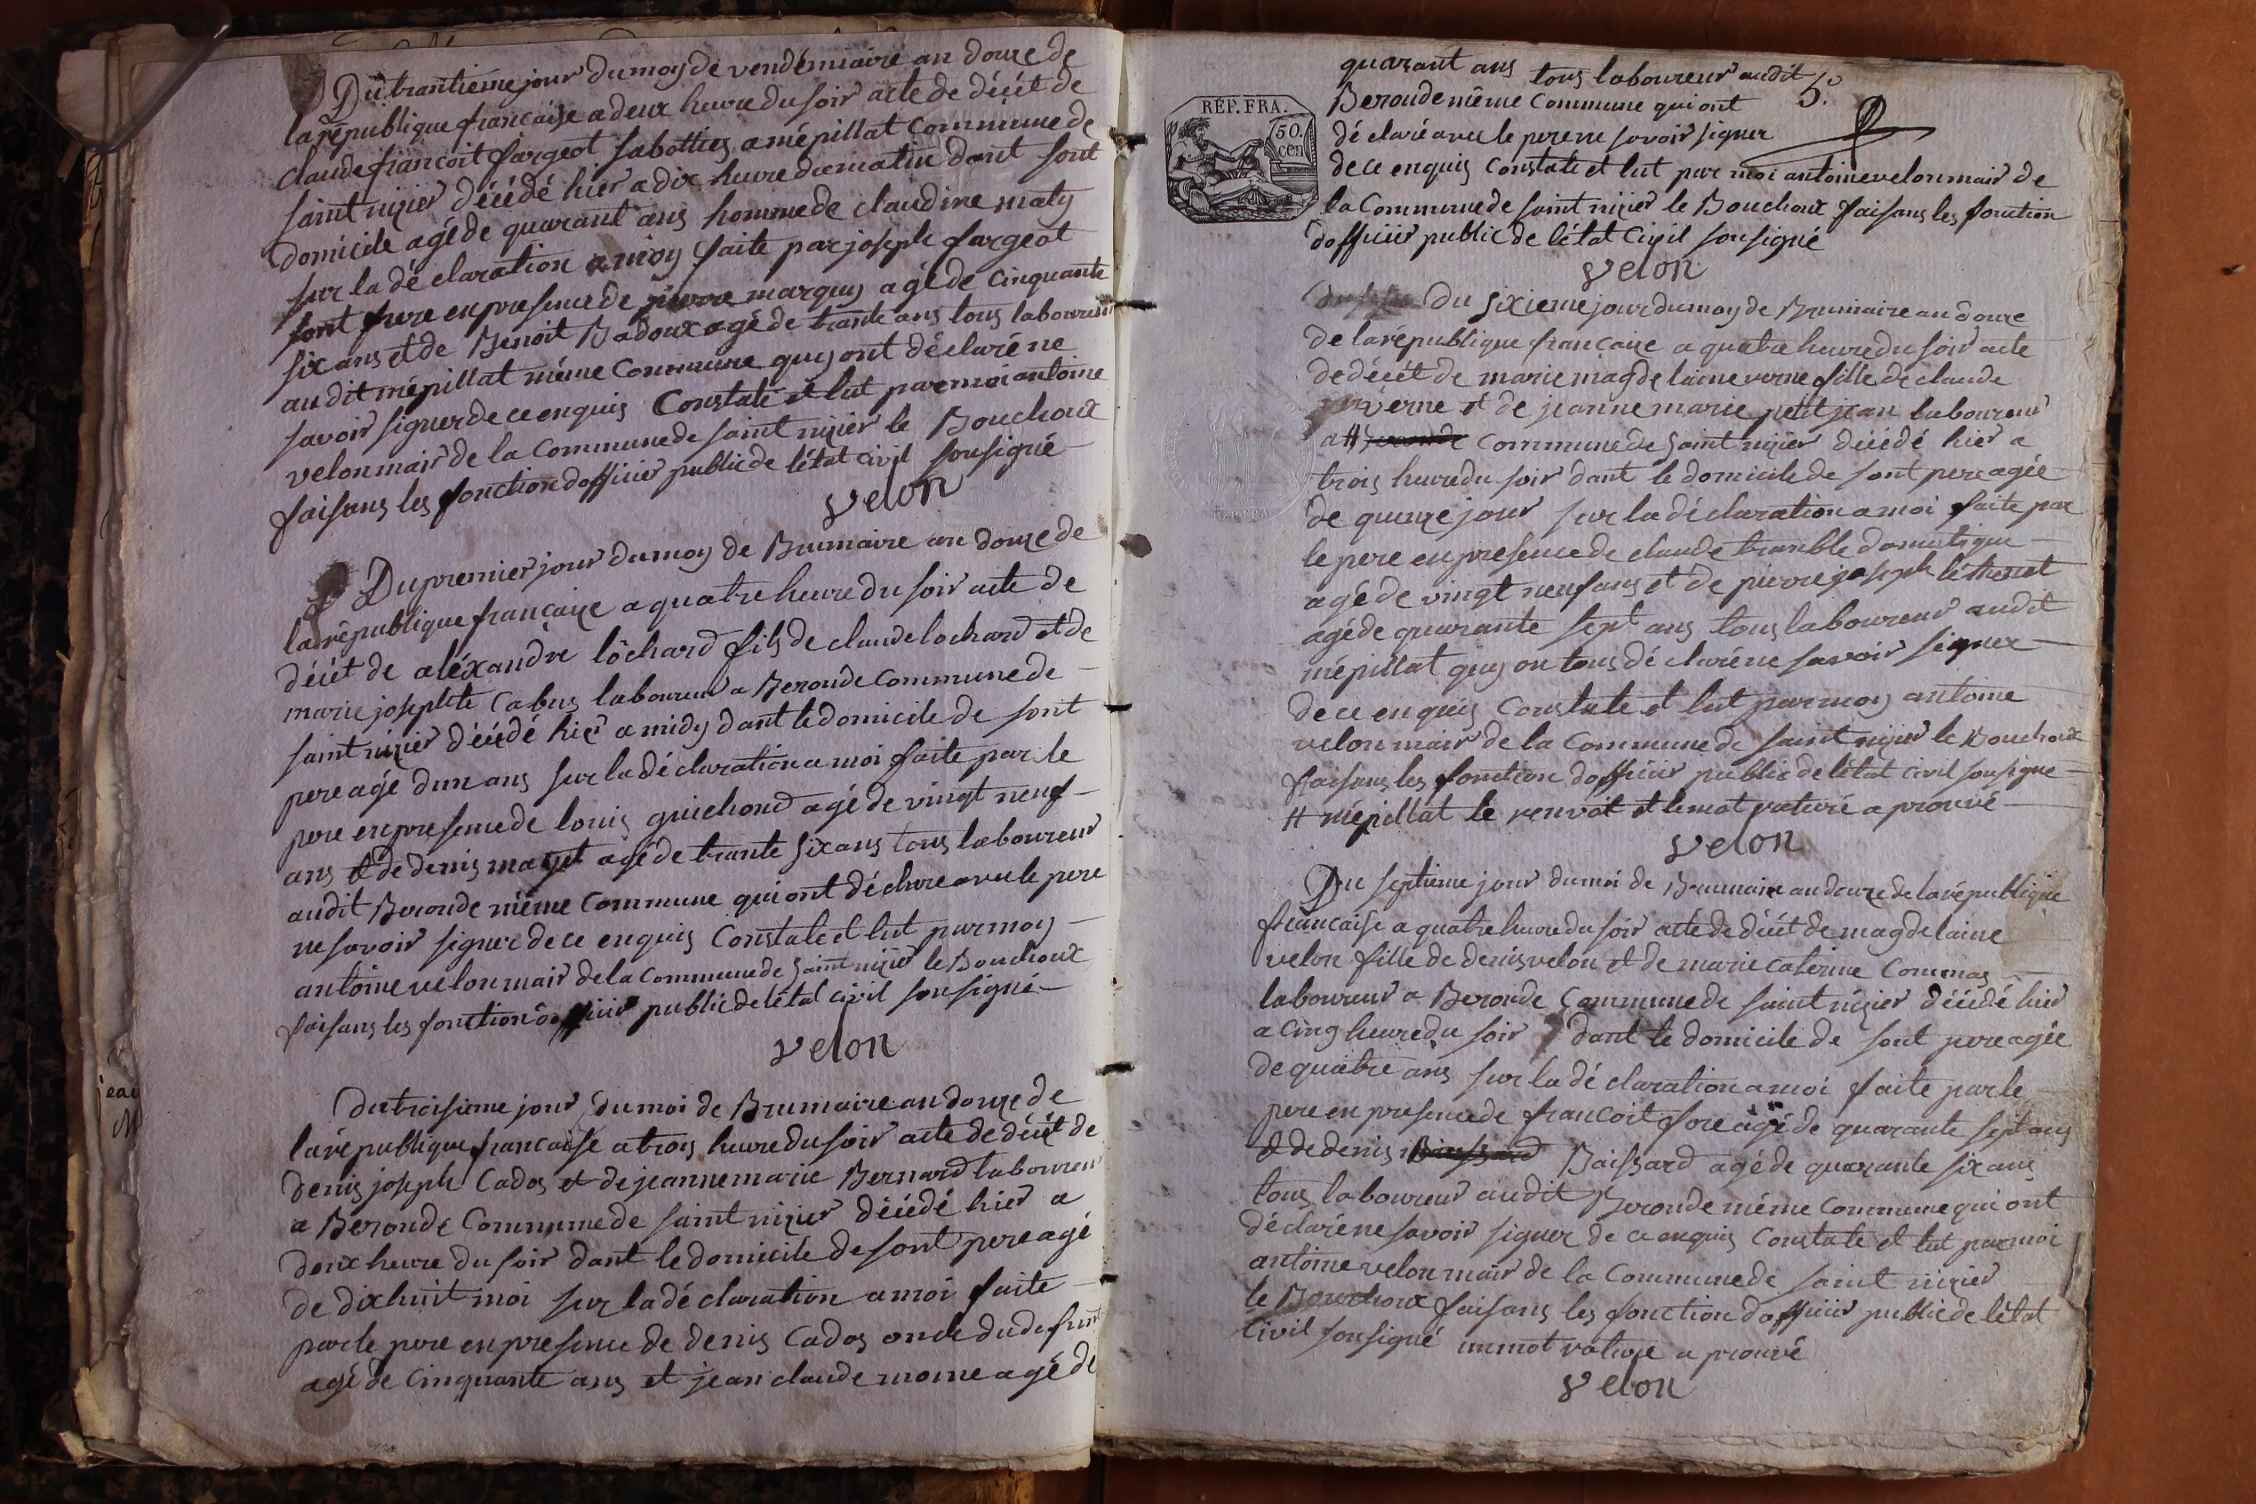 Du trantieme jour du moy de vendémiaire an douze de
la république française a deux heure du soir acte de décét de
claude françoit fargeot sabottier a mépillat commune de
saint nizier décédé hier a dix heure du matin dant sont
domicile agé de quarant ans homme de claudine maty
sur la déclaration a moy faite par joseph fargeot
sont frere en presence de pierre marguy agé de cinquante
six ans et de Benoit Badoux agé de trante ans tous laboureur
audit mépillat même Commune quy ont déclaré ne
savoir signer de ce enquis Constaté et lut par moi antoine
velon mair de la Commune de saint nizier le Bouchoux
faisans les fonction dofficier public de létat civil sousigné
velon
Du premier jour du moy de Brumaire an douze de
la république françaize a quatre heure du soir acte de
décét de aléxandre lôchard fils de claude lochard et de
marie josephte Cabus laboureur a Beronde Commune de
saint nizier décédé hier a midy dant le domicile de sont
pere agé dun ans sur la déclaration a moi faite par le
pere en presence de louis guichond agé de vingt neuf
ans et de denis mazet agé de trante six ans tous laboureur
audit Beronde même Commune qui ont déclare avec le pere
ne savoir signer de ce enquis Constaté et lut par moy
antoine velon mair de la Commune de saint nizier le Bouchoux
faisans les fonction dofficier public de létat civil sousigné
velon
du troisieme jour du moi de Brumaire an douze de
la république francaise a trois heure du soir acte de décét de
denis joseph Cados et de jeanne marie Bernard laboureur
a Beronde Commune de saint nizier décédé hier a
deux heure du soir dant le domicile de sont pere agé
de dixhuit moi sur la déclaration a moi faite
par le pere en presence de denis Cados oncle du defunt
agé de Cinquante ans et jean claude mome agé de
quarant ans tous laboureur audit
5.e
RÉP. FRA.
50.
cen
Beronde même Commune qui ont
déclaré avec le pere ne savoir signer
de ce enquis Constaté et lut par moi antoine velon mair de
la Commune de saint nizier le Bouchoux faisans les fonction
dofficier public de létat Civil sousigné
velon
Du sixieme jour du moy de Brumaire an douze
de la république française a quatre heure du soir acte
de décét de marie magdelaine verne fille de claude
verne et de jeanne marie petit jean laboureur
a # Commune de saint nizier décédé hier a
trois heure du soir dant le domicile de sont pere agée
de quinze jour sur la déclaration a moi faite par
le pere en presence de claude tramble domestique
agé de vingt neuf ans et de pierre joseph léthenet
agé de quarante sept ans tous laboureur audit
mépillat quy on tous déclaré ne savoir signer
de ce enquis Constaté et lut par moy antoine
velon mair de la Commune de saint nizier le Bouchoux
faisans les fonction dofficier public de létat civil sousigne
# mépillat le renvoit et le mot raturé a prouvé
velon
Du septieme jour du moi de Brumaire an douze de la république
francaise a quatre heure du soir acte de décét de magdelaine
velon fille de denis velon et de marie caterine Commas
laboureur a Beronde Commune de saint nizier décédé hier
a cinq heure du soir dant le domicile de sont pere agée
de quatre ans sur la déclaration a moi faite par le
pere en presence de francoit fore agé de quarante sept ans
et de denis Baissard Baissard agé de quarante six ans
tous laboureur audit Beronde même Commune qui ont
déclaré ne savoir signer de ce enquis Constaté et lut par moi
antoine velon mair de la Commune de saint nizier
le Bouchoux faisans les fonction dofficier public de létat
Civil sousigné un mot rature a prouvé
velon